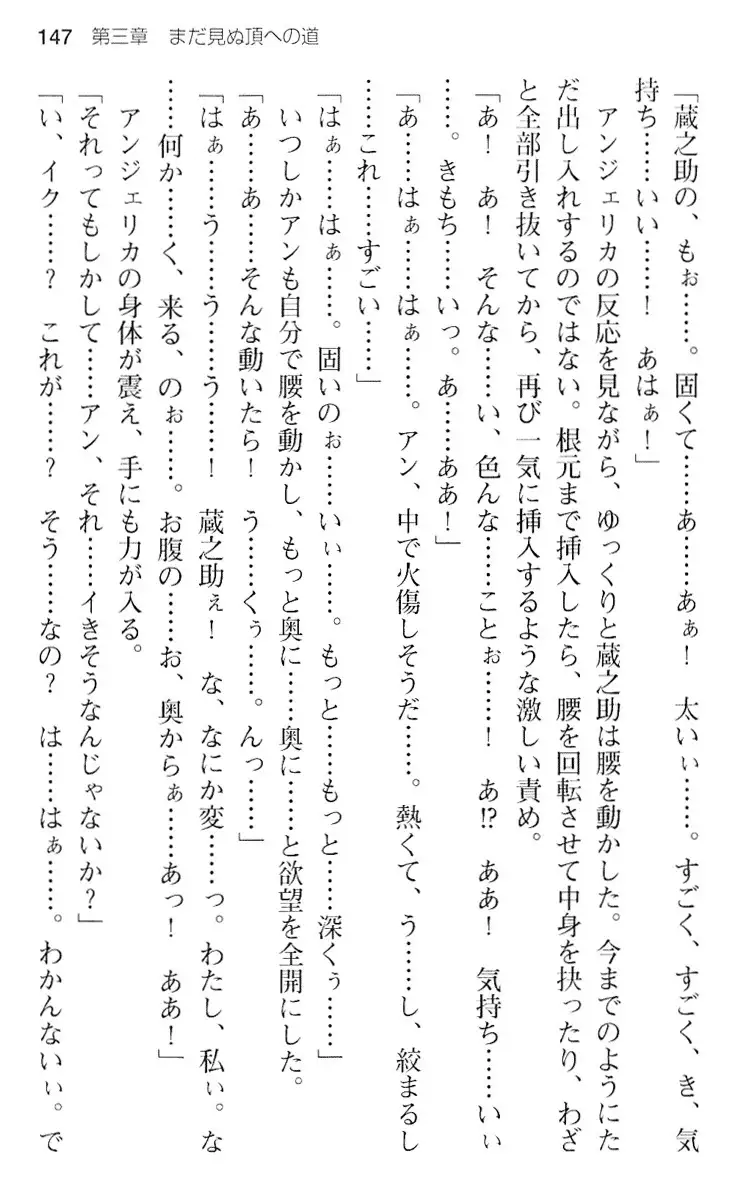 147 第三章 まだ見ぬ頂への道
「蔵之助の、もぉ……。固くて……あ……あぁ！ 太いぃ……。すごく、すごく、き、気
持ち……いい……！ あはぁ！」
アンジェリカの反応を見ながら、ゆっくりと蔵之助は腰を動かした。今までのようにた
だ出し入れするのではない。根元まで挿入したら、腰を回転させて中身を抉ったり、わざ
と全部引き抜いてから、再び一気に挿入するような激しい責め。
「あ！ あ！ そんな……い、色んな……ことぉ……！ あ!? ああ！ 気持ち……いぃ
……。きもち……いっ。あ……ああ！」
「あ……はぁ……はぁ……。アン、中で火傷しそうだ……。熱くて、う……し、絞まるし
……これ……すごい……」
「はぁ……はぁ……。固いのぉ……いぃ……。もっと……もっと……深くぅ……」
いつしかアンも自分で腰を動かし、もっと奥に……奥に……と欲望を全開にした。
「あ……あ……そんな動いたら！ う……くぅ……。んっ……」
「はぁ……う……う……う……！ 蔵之助ぇ！ な、なにか変……っ。わたし、私ぃ。な
……何か……く、来る、のぉ……。お腹の……お、奥からぁ……あっ！ ああ！」
アンジェリカの身体が震え、手にも力が入る。
「それってもしかして……アン、それ……イきそうなんじゃないか？」
「い、イク……？ これが……？ そう……なの？ は……はぁ……。わかんないぃ。で